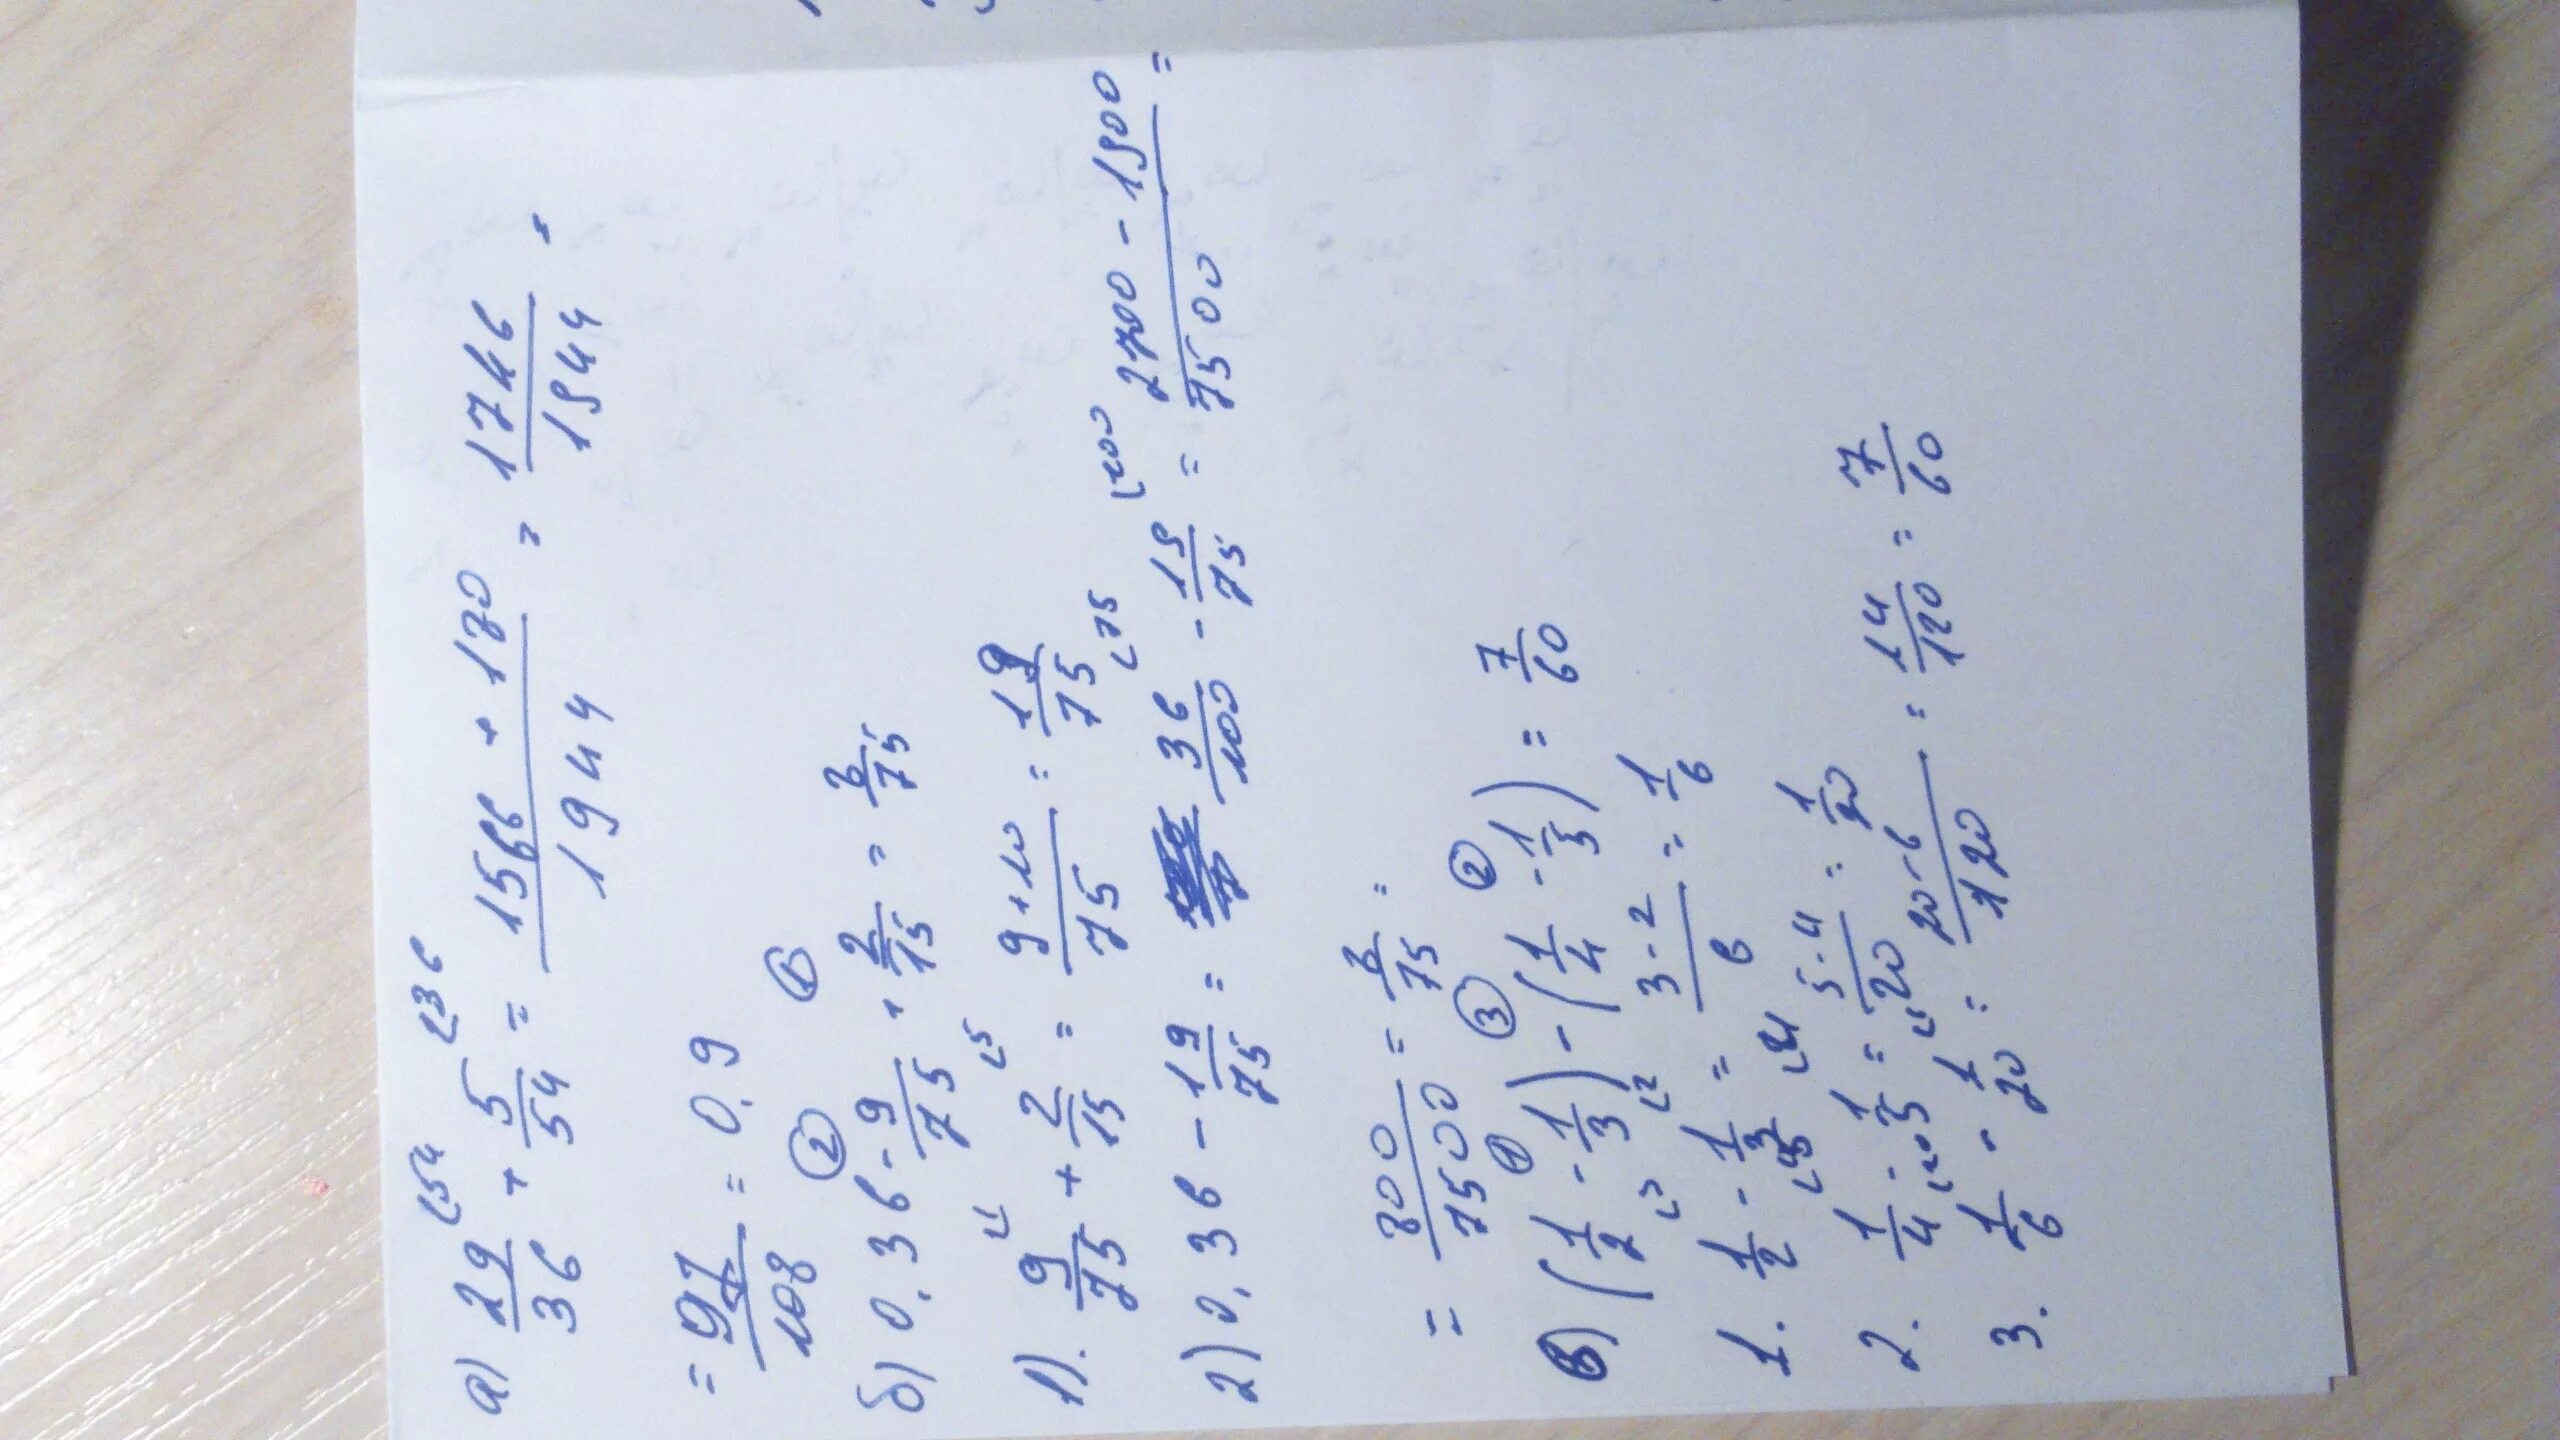 а) 29/36 (54 + 5/54 (36 = 1566 + 180/1944 = 1746/1944 =
= 97/108 = 0.9
б) 0.36 - ② 9/75 + ① 2/15 = 8/75
1). 9/75 (1 + 2/15 (5 = 9+10/75 = 19/75
2) 0.36 - 19/75 = 36/100 (75 - 19/75 (100 = 2700 - 1900/7500 =
= 800/7500 = 8/75 =
в) (1/2 - ① 1/3) - ③ (1/4 - ② 1/5) = 7/60
1. 1/2 (3 - 1/3 (2 = 3-2/6 = 1/6
2. 1/4 (5 - 1/5 (4 = 5-4/20 = 1/20
3. 1/6 (20 - 1/20 (6 = 20-6/120 = 14/120 = 7/60